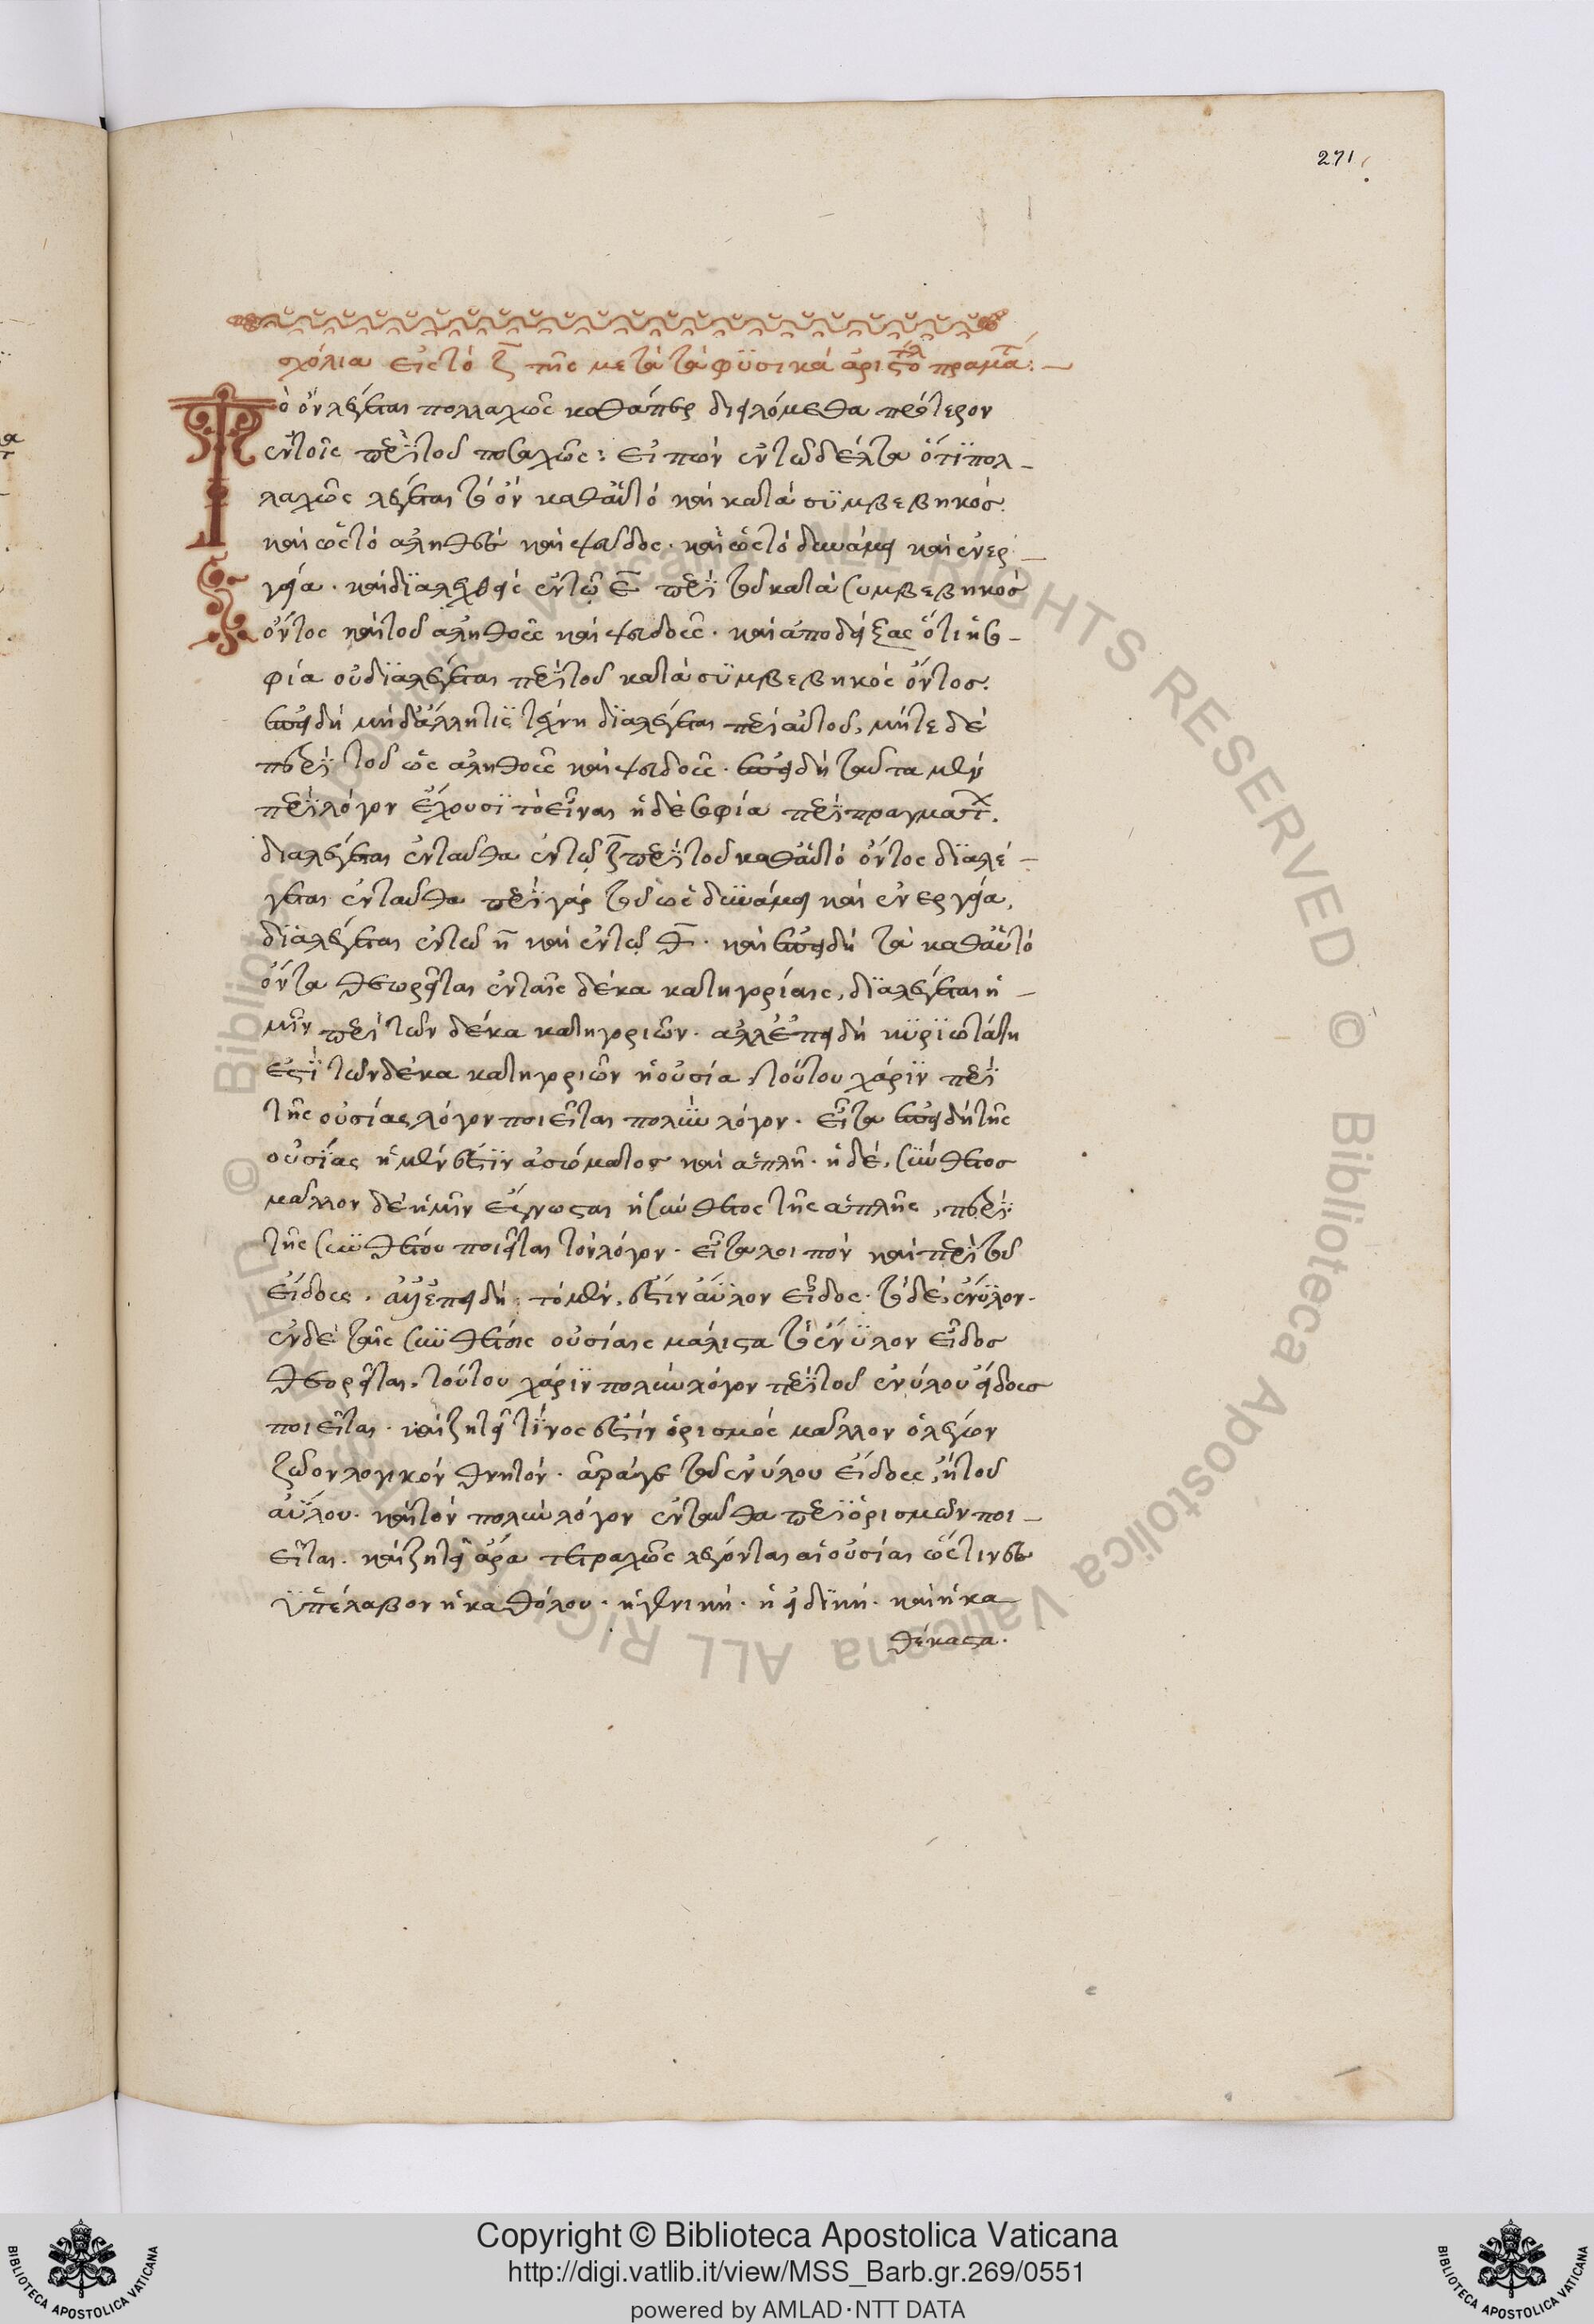 271
σχόλια εἰς τὸ ζ̄ τῆς μετὰ τὰ φϋσικὰ ἀριστοτέλ πραματ:—
Τὸ ὂν λέγεται πολλαχῶς καθάπερ διϊλόμεθα πρότερον
ἐν τοῖς περῒ τοῦ ποσαχῶς: εἰπὼν ἐν τῶ δέλτα ὅτι πολ-
λαχῶς λέγεται τὸ ὂν καθ' αὑτὸ καὶ κατὰ συμβεβηκός.
καὶ ὡς τὸ ἀληθὲς καὶ ψεῦδος. καὶ ὡς τὸ δυνάμει καὶ ἐνερ-
γεία. καὶ διαλεχθεὶς ἐν τῶ ε̄ περὶ τοῦ κατὰ συμβεβηκὸς
ὄντος καὶ τοῦ ἀληθοῦς καὶ ψευδοῦς. καὶ ἀποδείξας ὅτι ἡ σο-
φία οὐ διαλέγεται περὶ τοῦ κατὰ συμβεβηκὸς ὄντος.
ἐπειδὴ μηδ' ἄλλη τις τέχνη διαλέγεται περὶ αὐτοῦ, μήτε δὲ
περὶ τοῦ ὡς ἀληθοῦς καὶ ψευδοῦς. ἐπειδὴ ταῦτα μὲν
περὶ λόγον ἔχουσι τὸ εἶναι ἡ δὲ σοφία περὶ πραγματ.
διαλέγεται ἐνταῦθα ἐν τῶ ζ̄ περὶ τοῦ καθ' αὑτὸ ὄντος διαλέ-
γεται ἐνταῦθα περὶ γὰρ τοῦ ὡς δυνάμει καὶ ἐνεργεία,
διαλέγεται ἐν τῶ η̄ καὶ ἐν τῶ θ̄. καὶ ἐπειδὴ τὰ καθ' αὑτὸ
ὄντα θεωρεῖται ἐν ταῖς δέκα κατηγορίαις, διαλέγεται ἡ-
μῖν περὶ τῶν δέκα κατηγοριῶν. ἀλλ' ἐπειδὴ κυριωτάτη
ἐστὶ τῶν δέκα κατηγοριῶν ἡ οὐσία, τούτου χάριν περὶ
τῆς οὐσίας λόγον ποιεῖται πολὺν λόγον. εἶτα ἐπειδὴ τῆς
οὐσίας ἡ μέν ἐστιν ἀσώματος καὶ ἁπλῆ. ἡ δὲ, σύνθετος
μᾶλλον δὲ ἡμῖν ἔγνωσται ἡ σύνθετος τῆς ἁπλῆς, περὶ
τῆς συνθέτου ποιεῖται τὸν λόγον. εἶτα λοιπὸν καὶ περὶ τοῦ
εἴδους. ἀλλ' ἐπειδὴ, τὸ μέν, ἐστιν ἄϋλον εἶδος. τὸ δέ, ἔνϋλον.
ἐν δὲ ταῖς συνθέτοις οὐσίαις μάλιστα τὸ ἔνϋλον εἶδος
θεορεῖται. τούτου χάριν πολὺν λόγον περὶ τοῦ ἐνύλου εἴδους
ποιεῖται. καὶ ζητεῖ τίνος ἐστὶν ὁρισμὸς μᾶλλον ὁ λέγων
ζῶον λογικὸν θνητόν. ἆρά γε τοῦ ἐνύλου εἴδους, ἢ τοῦ
ἀΰλου. καὶ τὸν πολὺν λόγον ἐνταῦθα περὶ ὁρισμῶν ποι-
εῖται. καὶ ζητεῖ ἆρα τετραχῶς λέγονται αἱ οὐσίαι ὥς τινες
ὑπέλαβον ἡ καθόλου. ἡ γενικὴ. ἡ εἰδικὴ. καὶ ἡ κα
θέκαστα.
Copyright © Biblioteca Apostolica Vaticana
http://digi.vatlib.it/view/MSS_Barb.gr.269/0551
powered by AMLAD·NTT DATA